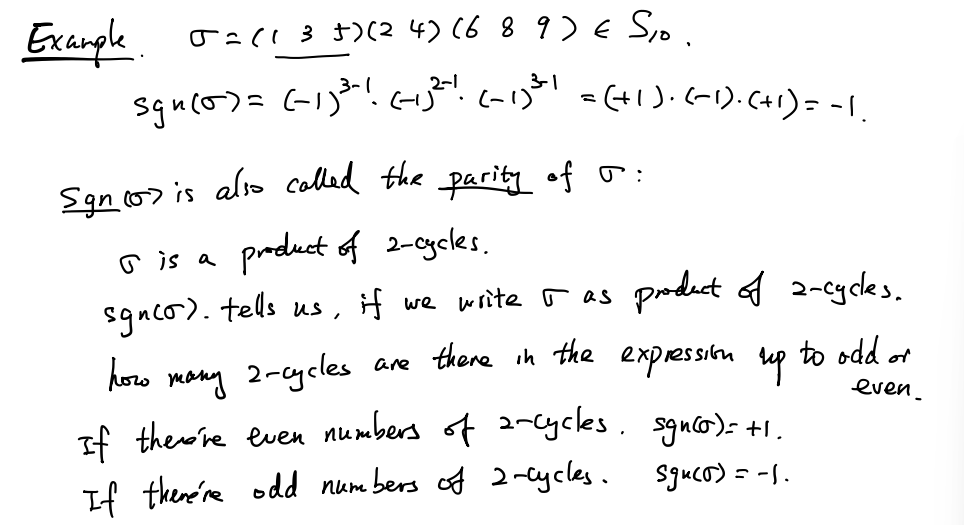 Example. σ = (1 3 5)(2 4)(6 8 9) ∈ S₁₀.
sgn(σ) = (-1)³⁻¹ · (-1)²⁻¹ · (-1)³⁻¹ = (+1)·(-1)·(+1) = -1.
Sgn(σ) is also called the parity of σ :
σ is a product of 2-cycles.
sgn(σ). tells us, if we write σ as product of 2-cycles.
how many 2-cycles are there in the expression up to odd or
even.
If there're even numbers of 2-cycles. sgn(σ)= +1.
If there're odd numbers of 2-cycles. sgn(σ) = -1.